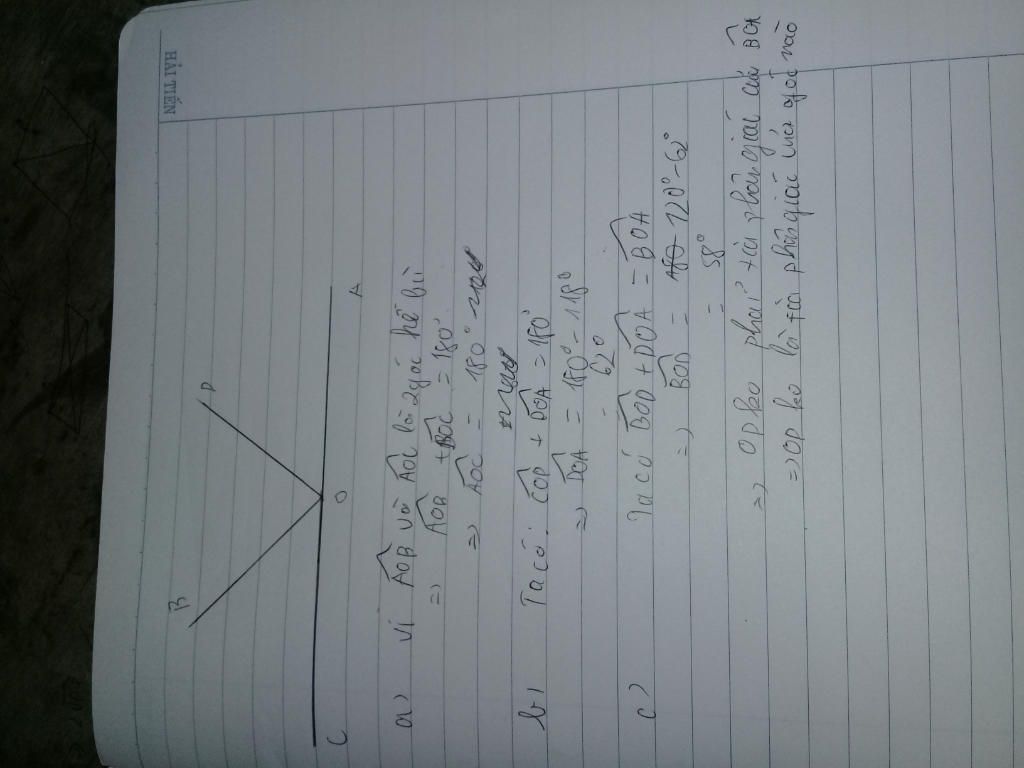 HẢI TIẾN
B
D
C
O
A
a) Vì AOB và AOC là 2 góc kề bù
=> AOB + BOC = 180°
=> AOC = 180°
b) Ta có: COD + DOA = 180°
=> DOA = 180° - 118°
= 62°
c) Ta có BOD + DOA = BOA
=> BOD = 120° - 62°
= 58°
=> OD ko phải tia phân giác của BOA
=> OD ko là tia phân giác của góc nào